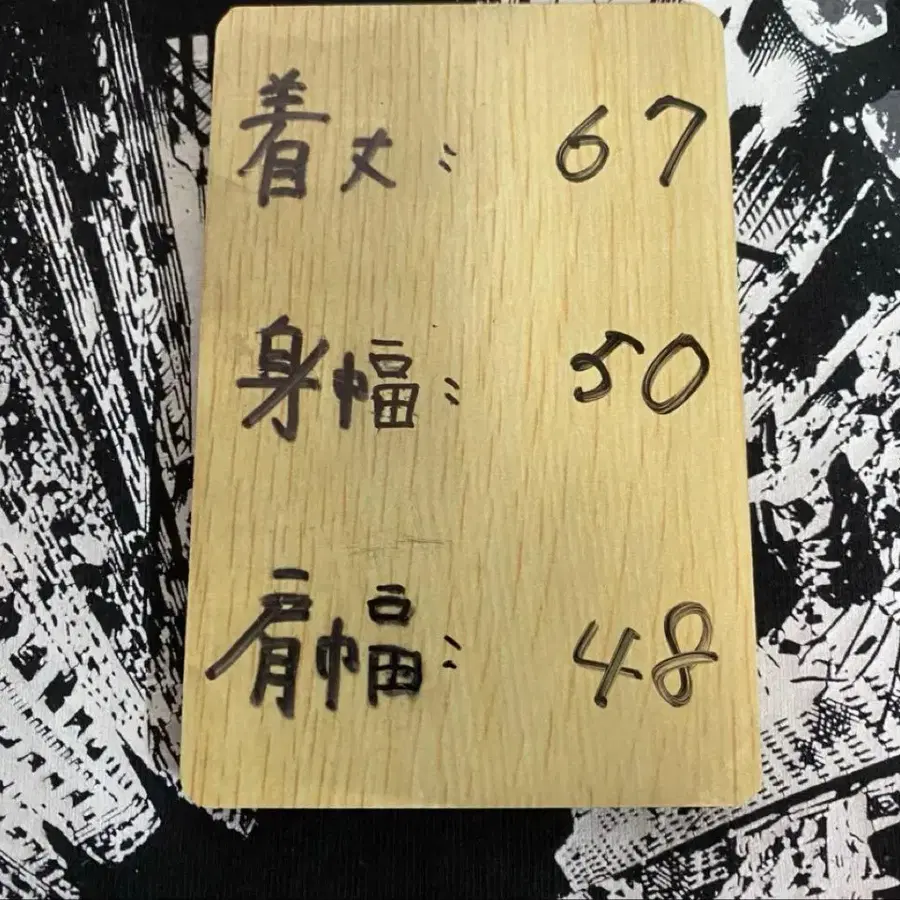 着丈: 67
身幅: 50
肩幅: 48